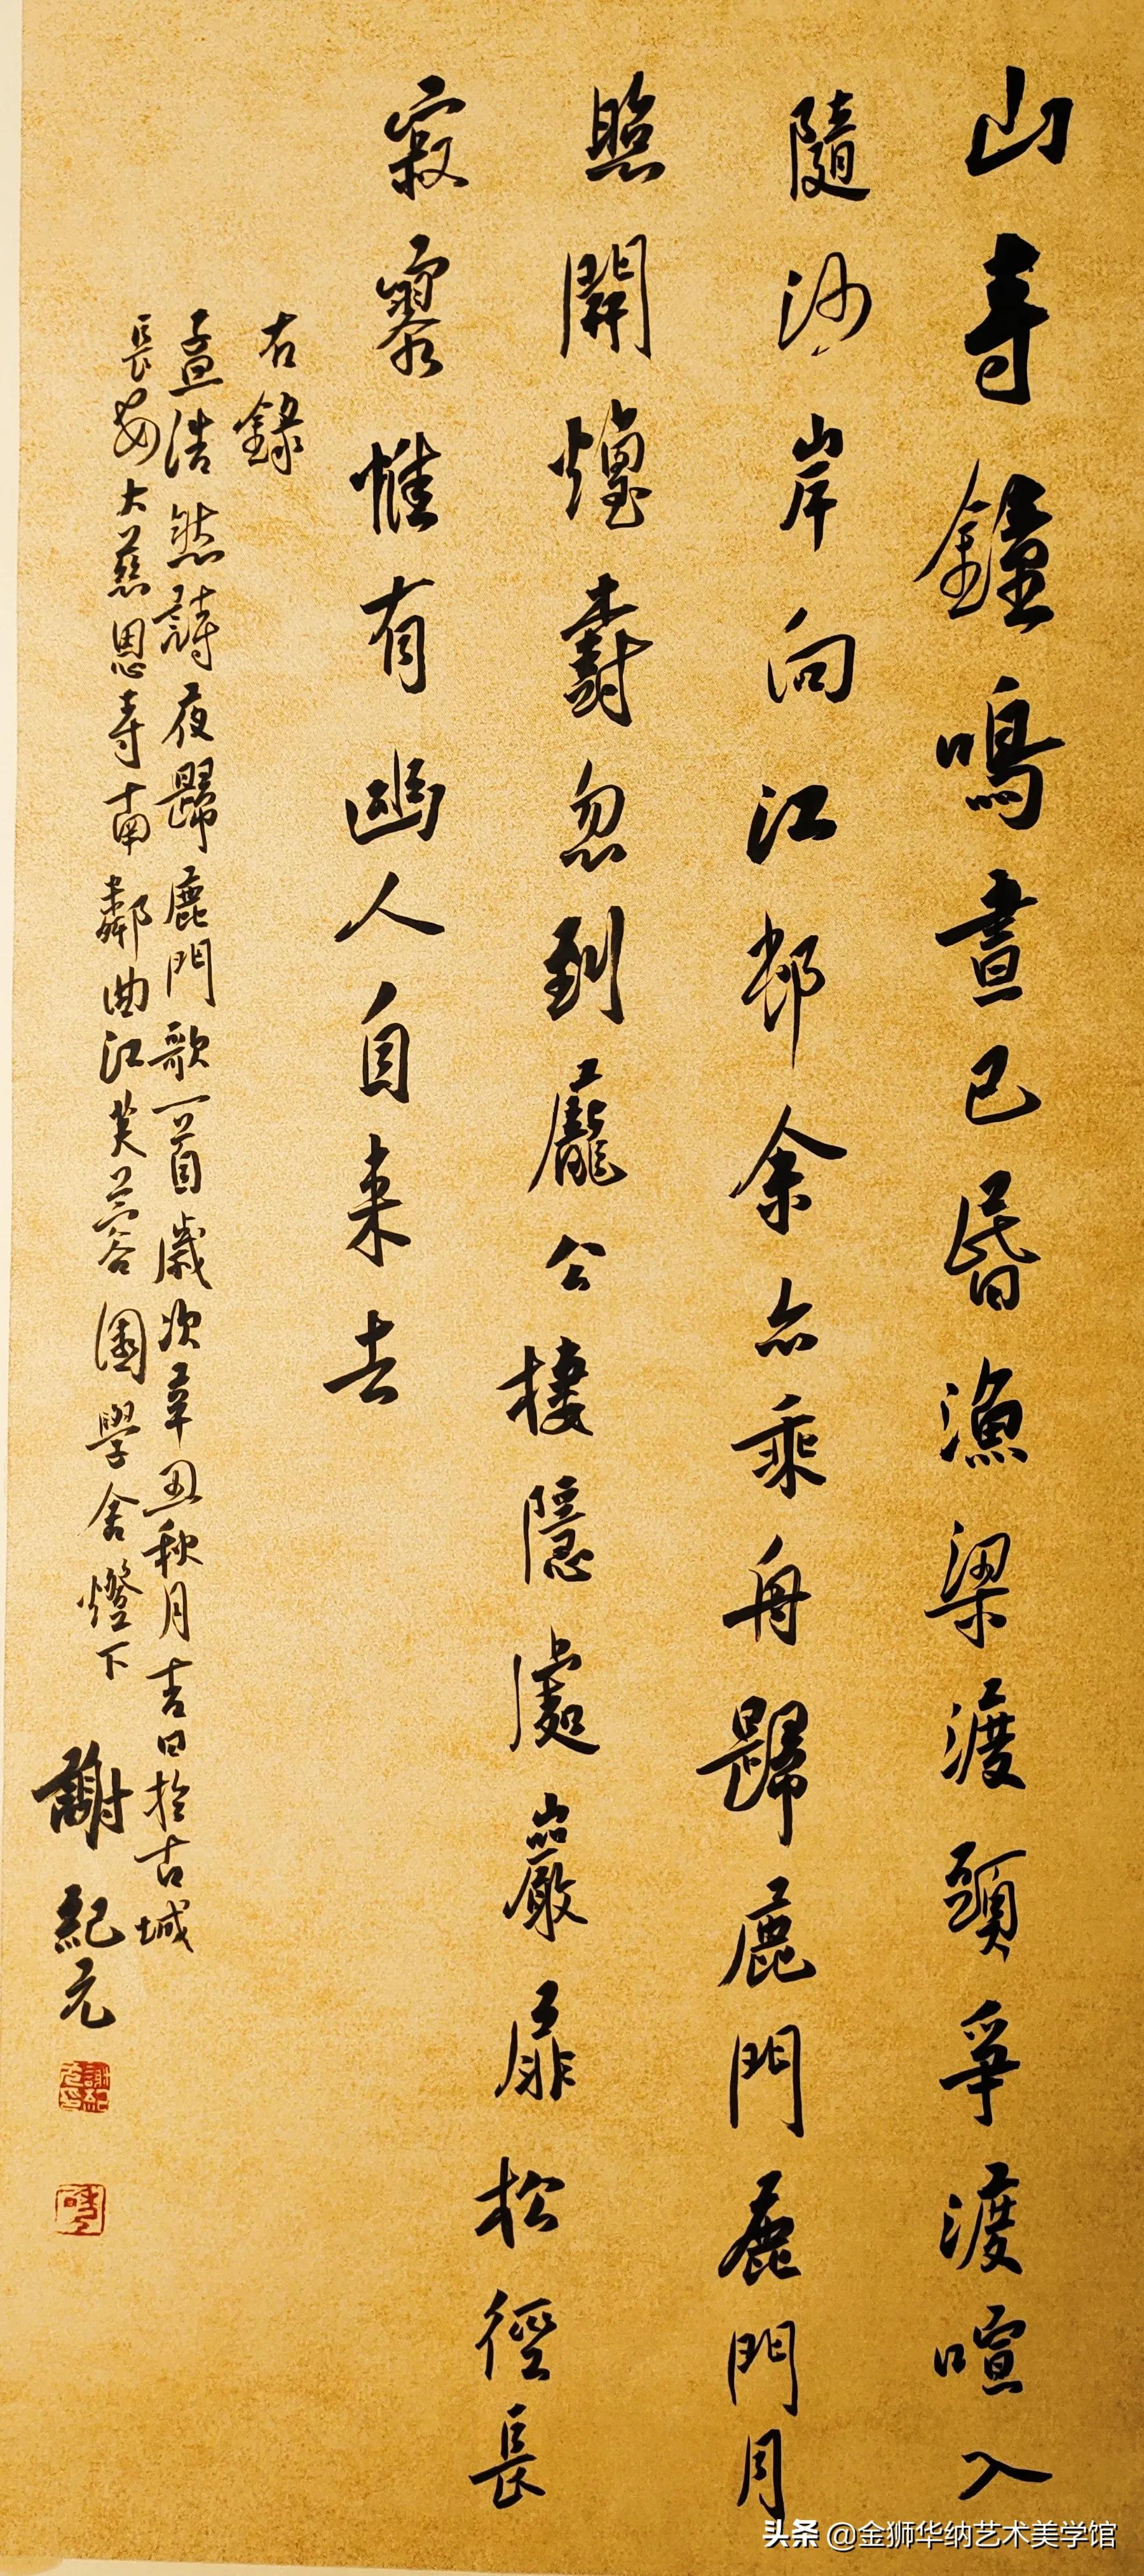 山寺鐘鳴晝已昏漁梁渡頭爭渡喧入
隨沙岸向江邨余亦乘舟歸鹿門鹿門月
照開煙樹忽到龐公棲隱處巖扉松徑長
寂寥惟有幽人自来去
右錄
孟浩然詩夜歸鹿門歌一首歲次辛丑秋月吉日於古城
長安大慈恩寺南鄰曲江芙蓉園學舍燈下
謝紀元
头条 @金狮华纳艺术美学馆